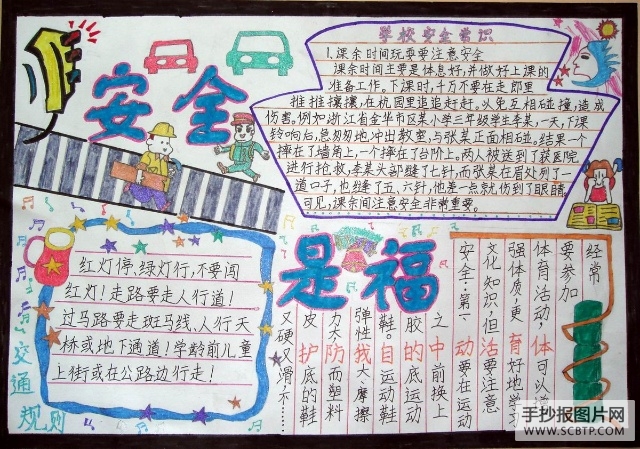 安全
是福
学校安全常识
1.课余时间玩耍要注意安全
课余时间主要是休息好,并做好上课的
准备工作。下课时,千万不要在走郎里
推推攘攘,在校园里追追赶赶。以免互相碰撞,造成
伤害。例如浙江省金华市区某小学三年级学生李某,一天,下课
铃响后,急匆匆地冲出教室,与张某正面相碰。结果一个
摔在了墙角上,一个摔在了台阶上。两人被送到了获医院
进行抢救,李某头部缝了七针,而张某在眉处列了一
道口子,也缝了五、六针,他差一点就伤到了眼睛
可见,课余间注意安全非常重要。
交通规则
红灯停,绿灯行,不要闯
红灯!走路要走人行道!
过马路要走斑马线、人行天
桥或地下通道!学龄前儿童
上街或在公路边行走!
经常
要参加
体育活动,体可以增
强体质,更育好地学习
文化知识,但活要注意
安全:第一动要在运动
之中前换上
胶的底运动
鞋。自运动鞋
弹性我大、摩擦
力大防而塑料
皮护底的鞋
又硬又滑不……
手抄报图片网
WWW.SCBTP.COM